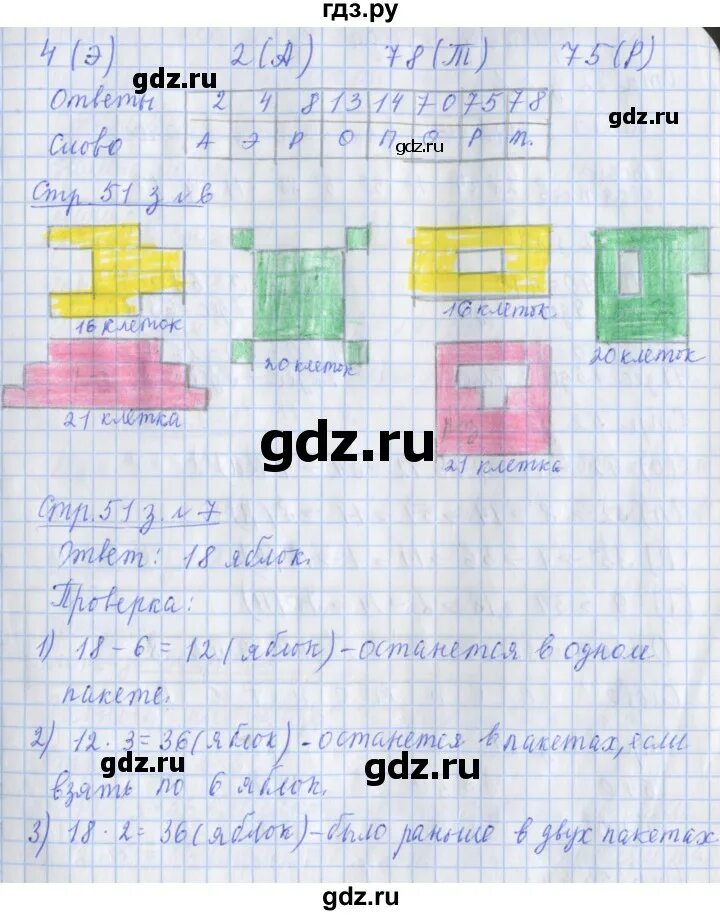 гдз.ру
4 (Э) 2 (А) 78 (Т) 75 (Р)
gdz.ru
Ответы 2 4 8 13 14 70 75 78
gdz.ru
Слово А Э Р О П О Р Т.
gdz.ru
Стр. 51 з № 6
16 клеток
16 клеток.
20 клеток
20 клеток
21 клетка
21 клетка
gdz.ru
Стр. 51 з. № 7
Ответ: 18 яблок.
Проверка:
1) 18 - 6 = 12 (яблок) - останется в одном
пакете.
2) 12 · 3 = 36 (яблок) - останется в пакетах, если
gdz.ru
gdz.ru
взять по 6 яблок.
3) 18 · 2 = 36 (яблок) - было раньше в двух пакетах
gdz.ru